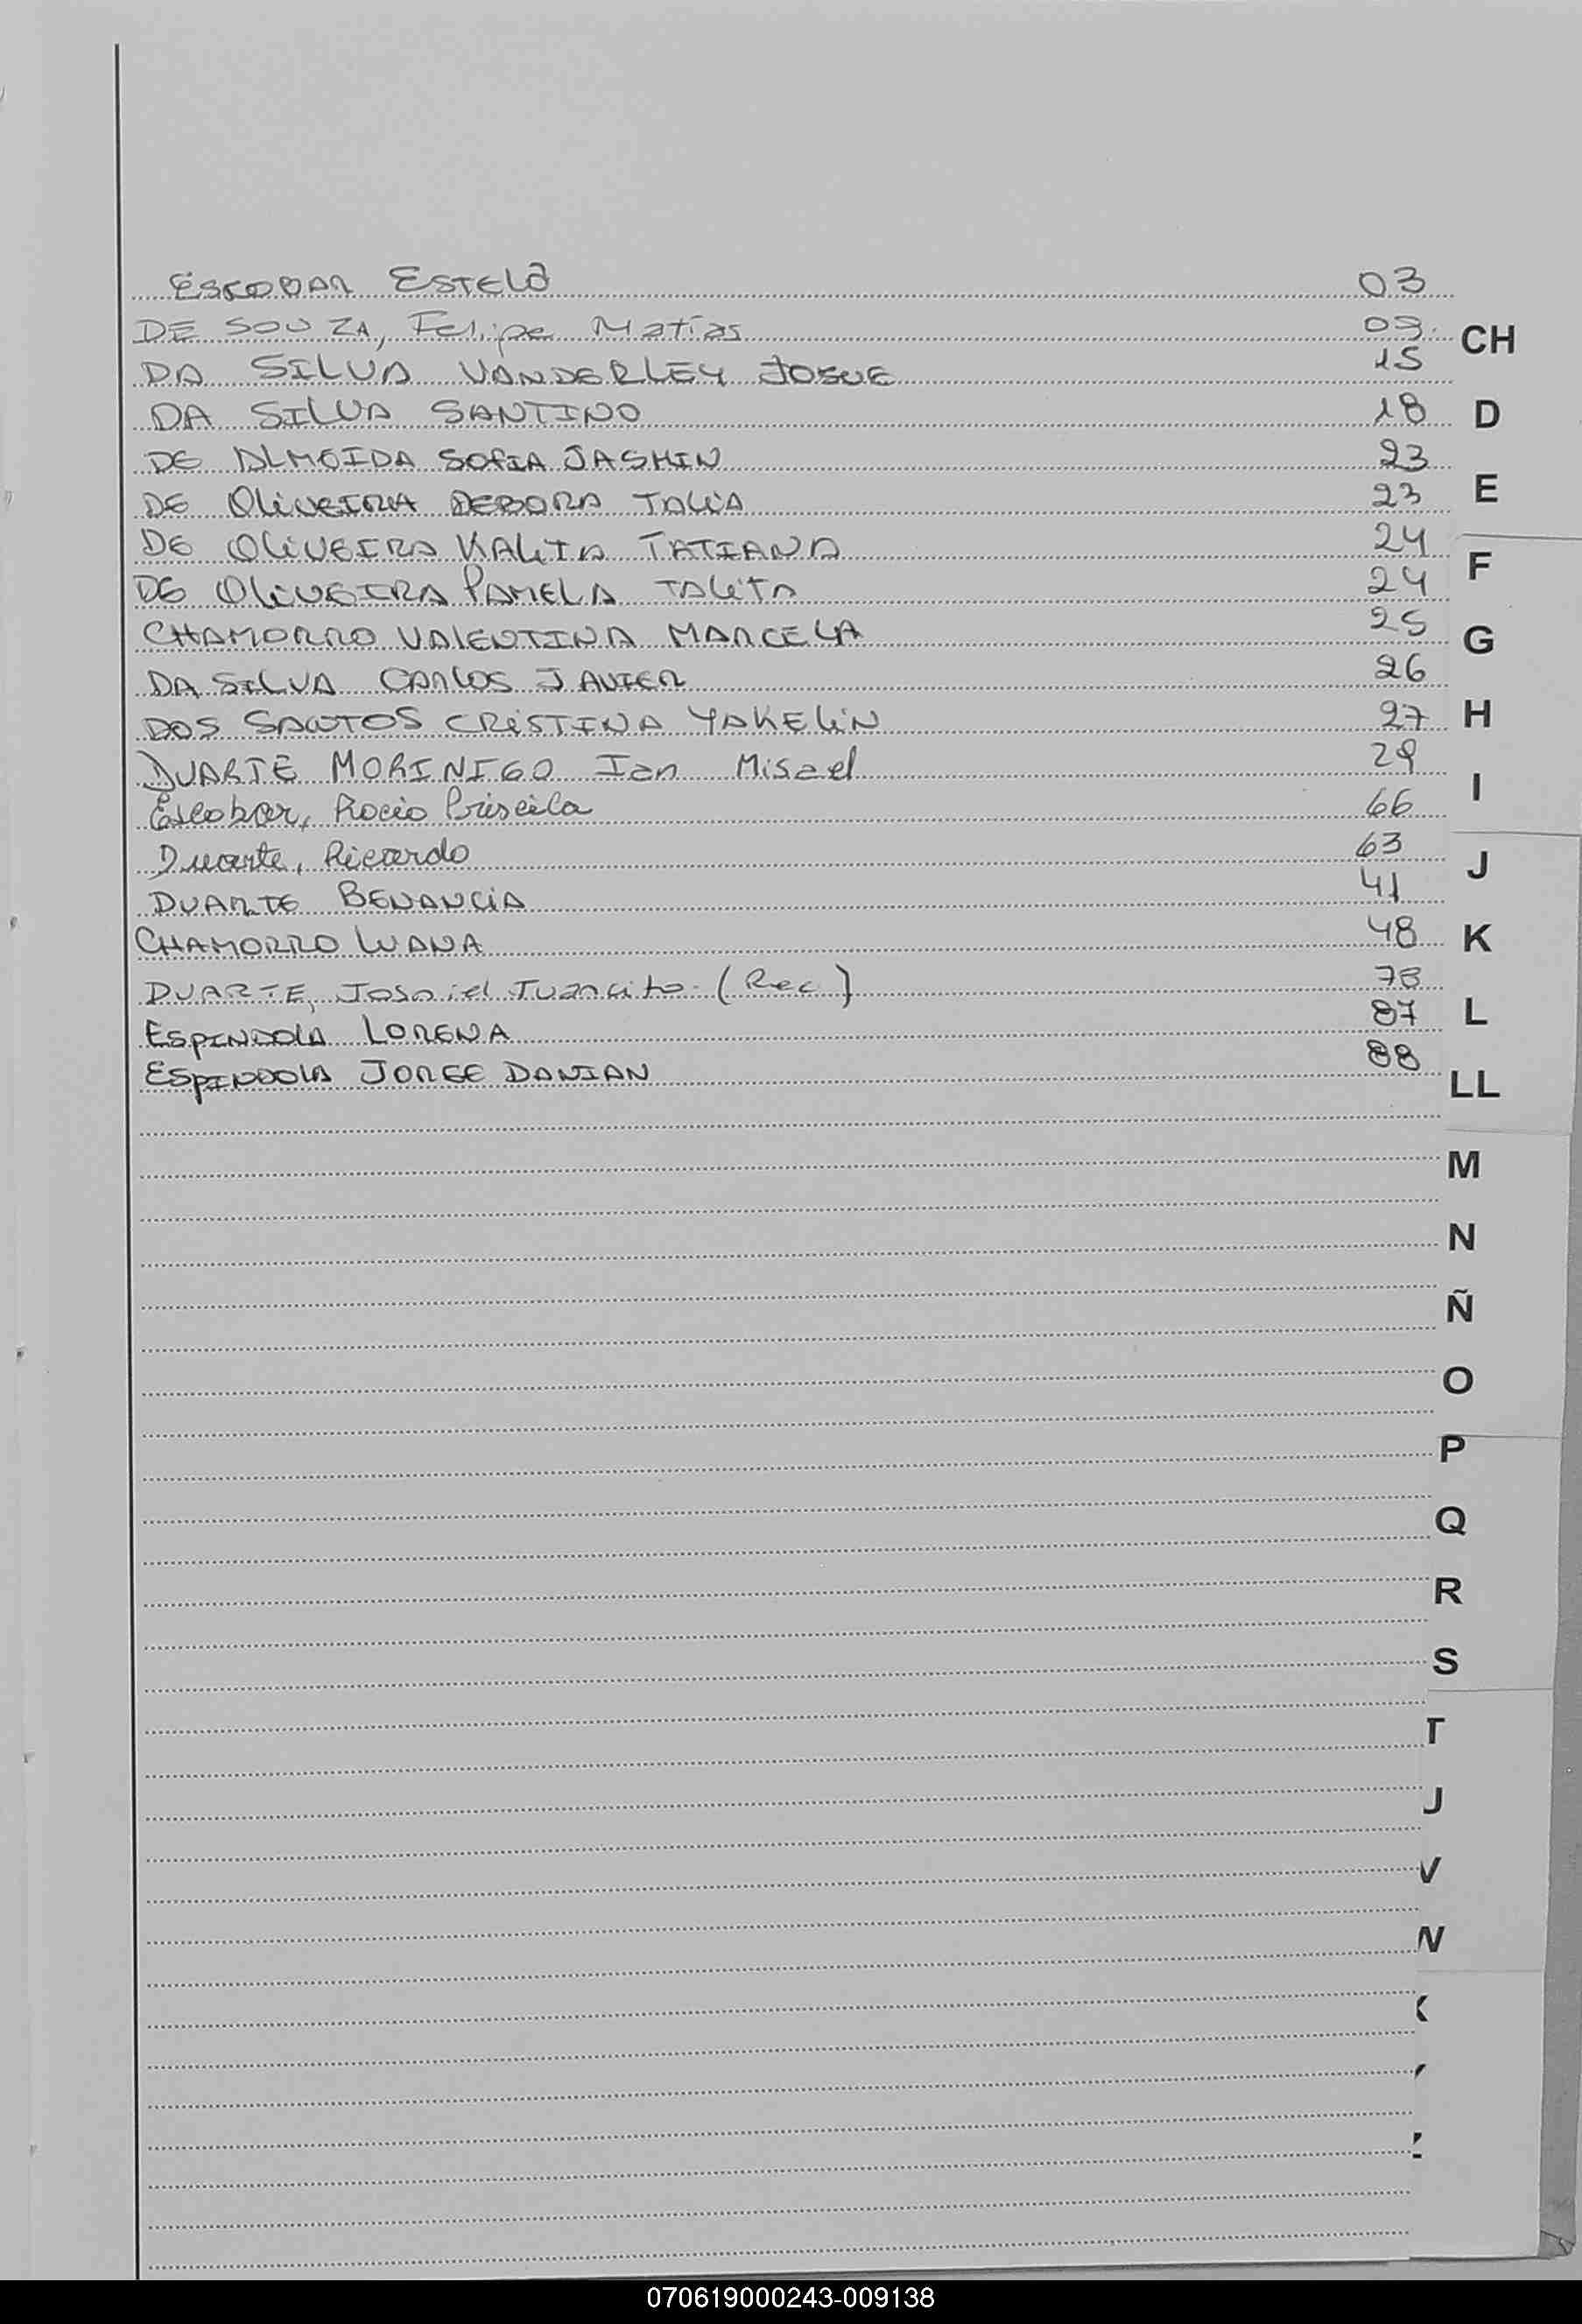 ESCOBAR ESTELA 03
DE SOUZA, Felipe Matías 09.
DA SILVA VANDERLEY JOSUE 15
DA SILVA SANTINO 18
DE ALMEIDA SOFIA JASMIN 23
DE OLIVEIRA DEBORA TALIA 23
DE OLIVEIRA KALITA TATIANA 24
DE OLIVEIRA PAMELA TALITA 24
CHAMORRO VALENTINA MARCELA 25
DA SILVA CARLOS JAVIER 26
DOS SANTOS CRISTINA YAKELIN 27
DUARTE MORINIGO Ian Misael 29
Escobar, Rocio Priscila 66
Duarte, Ricardo 63
DUARTE BENANCIA 41
CHAMORRO LUANA 48
DUARTE, Josniel Juancito (Rec) 78
ESPINDOLA LORENA 87
ESPINDOLA JORGE DAMIAN 88
CH
D
E
F
G
H
I
J
K
L
LL
M
N
Ñ
O
P
Q
R
S
T
J
V
N
070619000243-009138